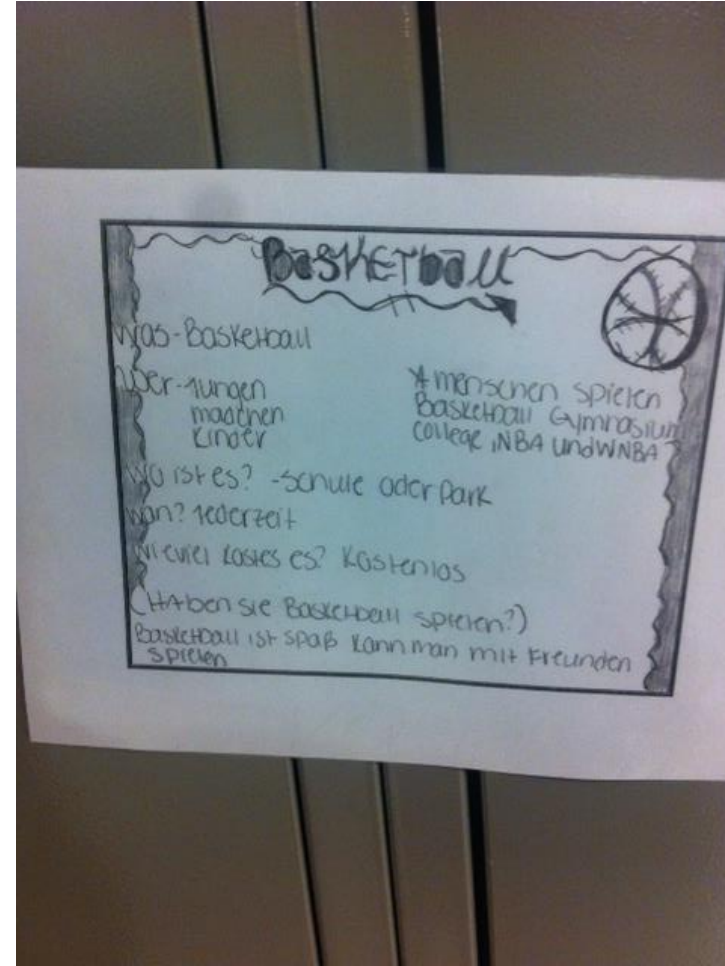 Basketball
Was-Basketball
Wer-Jungen
madchen
Kinder
* menschen spielen
Basketball Gymnasium
college, NBA und WNBA
Wo ist es? -schule oder Park
Wan? Jederzeit
Wieviel kostes es? Kostenlos
(Haben sie Basketball spielen?)
Basketball ist spaß kann man mit Freunden
spielen